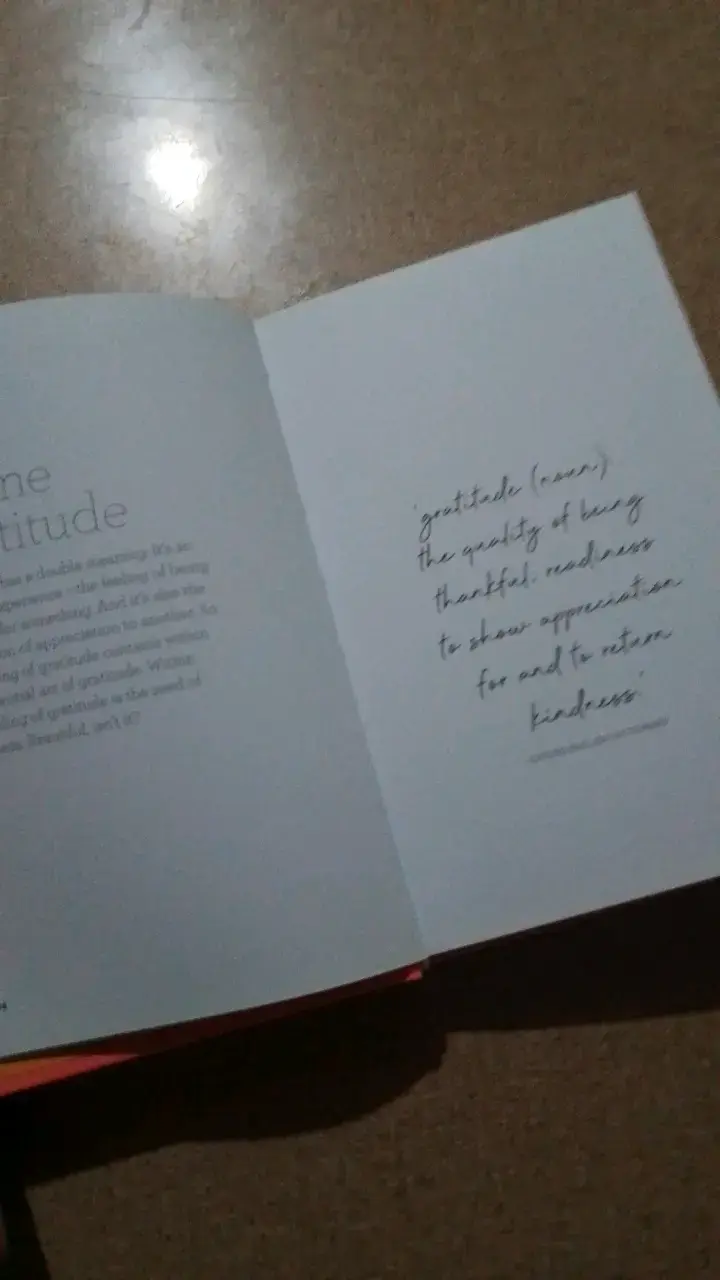 me
titude
has a double meaning. It's an
xperience – the feeling of being
for something. And it's also the
on of appreciation to another. So
ing of gratitude contains within
ential act of gratitude. Within
ling of gratitude is the seed of
Beautiful, isn't it?
'gratitude (noun)
the quality of being
thankful; readiness
to show appreciation
for and to return
kindness.'